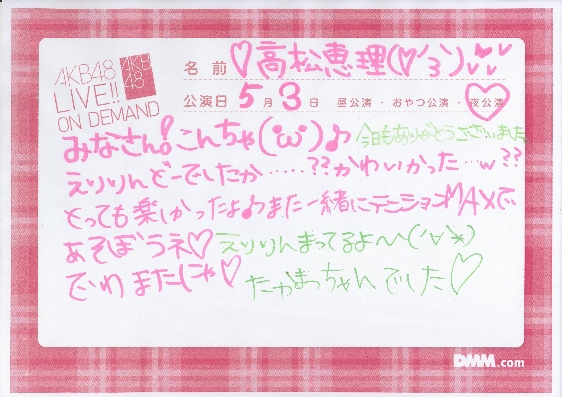 AKB48
LIVE!!
ON DEMAND
AKB
48
名前 ♡高松恵理(♡´3`)
公演日 5月3日 昼公演・おやつ公演・夜公演
みなさん!こんちゃ(・ω・)♪ 今日もありがとうございました
えりりんどーでしたか……??かわいかった…w??
とっても楽しかったよ♪また一緒にテンションMAXで
あそぼうネ♡えりりんまってるよ〜(´∀`*)
でわまたにゃ♡ たかまっちゃんでした♡
DMM.com